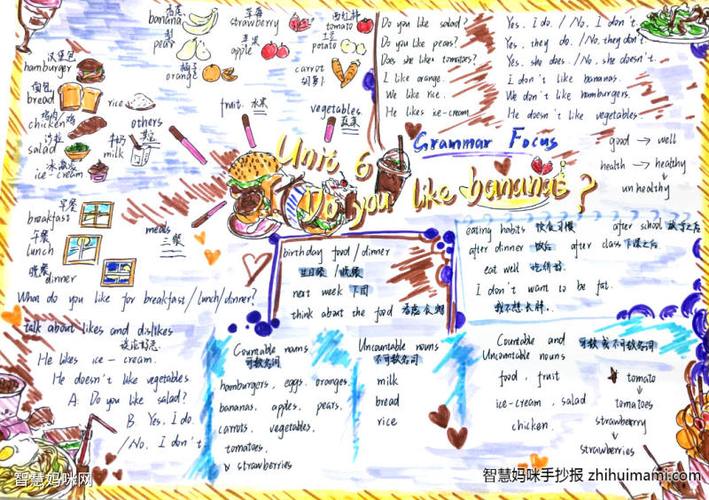 香蕉
banana
草莓
strawberry
西红柿
tomato
梨
pear
苹果
apple
土豆
potato
橘子
orange
carrot
胡萝卜
fruit 水果
vegetables
蔬菜
汉堡包
hamburger
面包
bread
rice
chicken
沙拉
salad
others
牛奶
milk
冰激凌
ice-cream
早餐
breakfast
午餐
lunch
晚餐
dinner
meals
三餐
What do you like for breakfast/lunch/dinner?
Do you like salad?
Yes, I do. / No, I don't.
Do you like pears?
Yes, they do. / No, they don't.
Does she like tomatoes?
Yes, she does. / No, she doesn't.
I like orange.
I don't like bananas.
We like rice.
We don't like hamburgers.
He likes ice-cream
He doesn't like vegetables
Grammar Focus
good → well
health → healthy
unhealthy
Unit 6
Do you like bananas?
birthday food / dinner
next week 下周
think about the food
eating habits 饮食习惯
after school 放学之后
after dinner 饭后
after class 下课之后
eat well 吃得好
I don't want to be fat.
我不想长胖.
talk about likes and dislikes
谈论好恶
He likes ice-cream.
He doesn't like vegetables
A: Do you like salad?
B Yes, I do.
/No, I don't
Countable nouns
可数名词
hamburgers, eggs, oranges,
bananas, apples, pears,
carrots, vegetables,
tomatoes,
strawberries
Uncountable nouns
不可数名词
milk
bread
rice
Countable and
Uncountable nouns
可数或不可数名词
food, fruit
ice-cream, salad
chicken
tomato
tomatoes
strawberry
strawberries
智慧妈咪网
智慧妈咪手抄报 zhihuimami.com